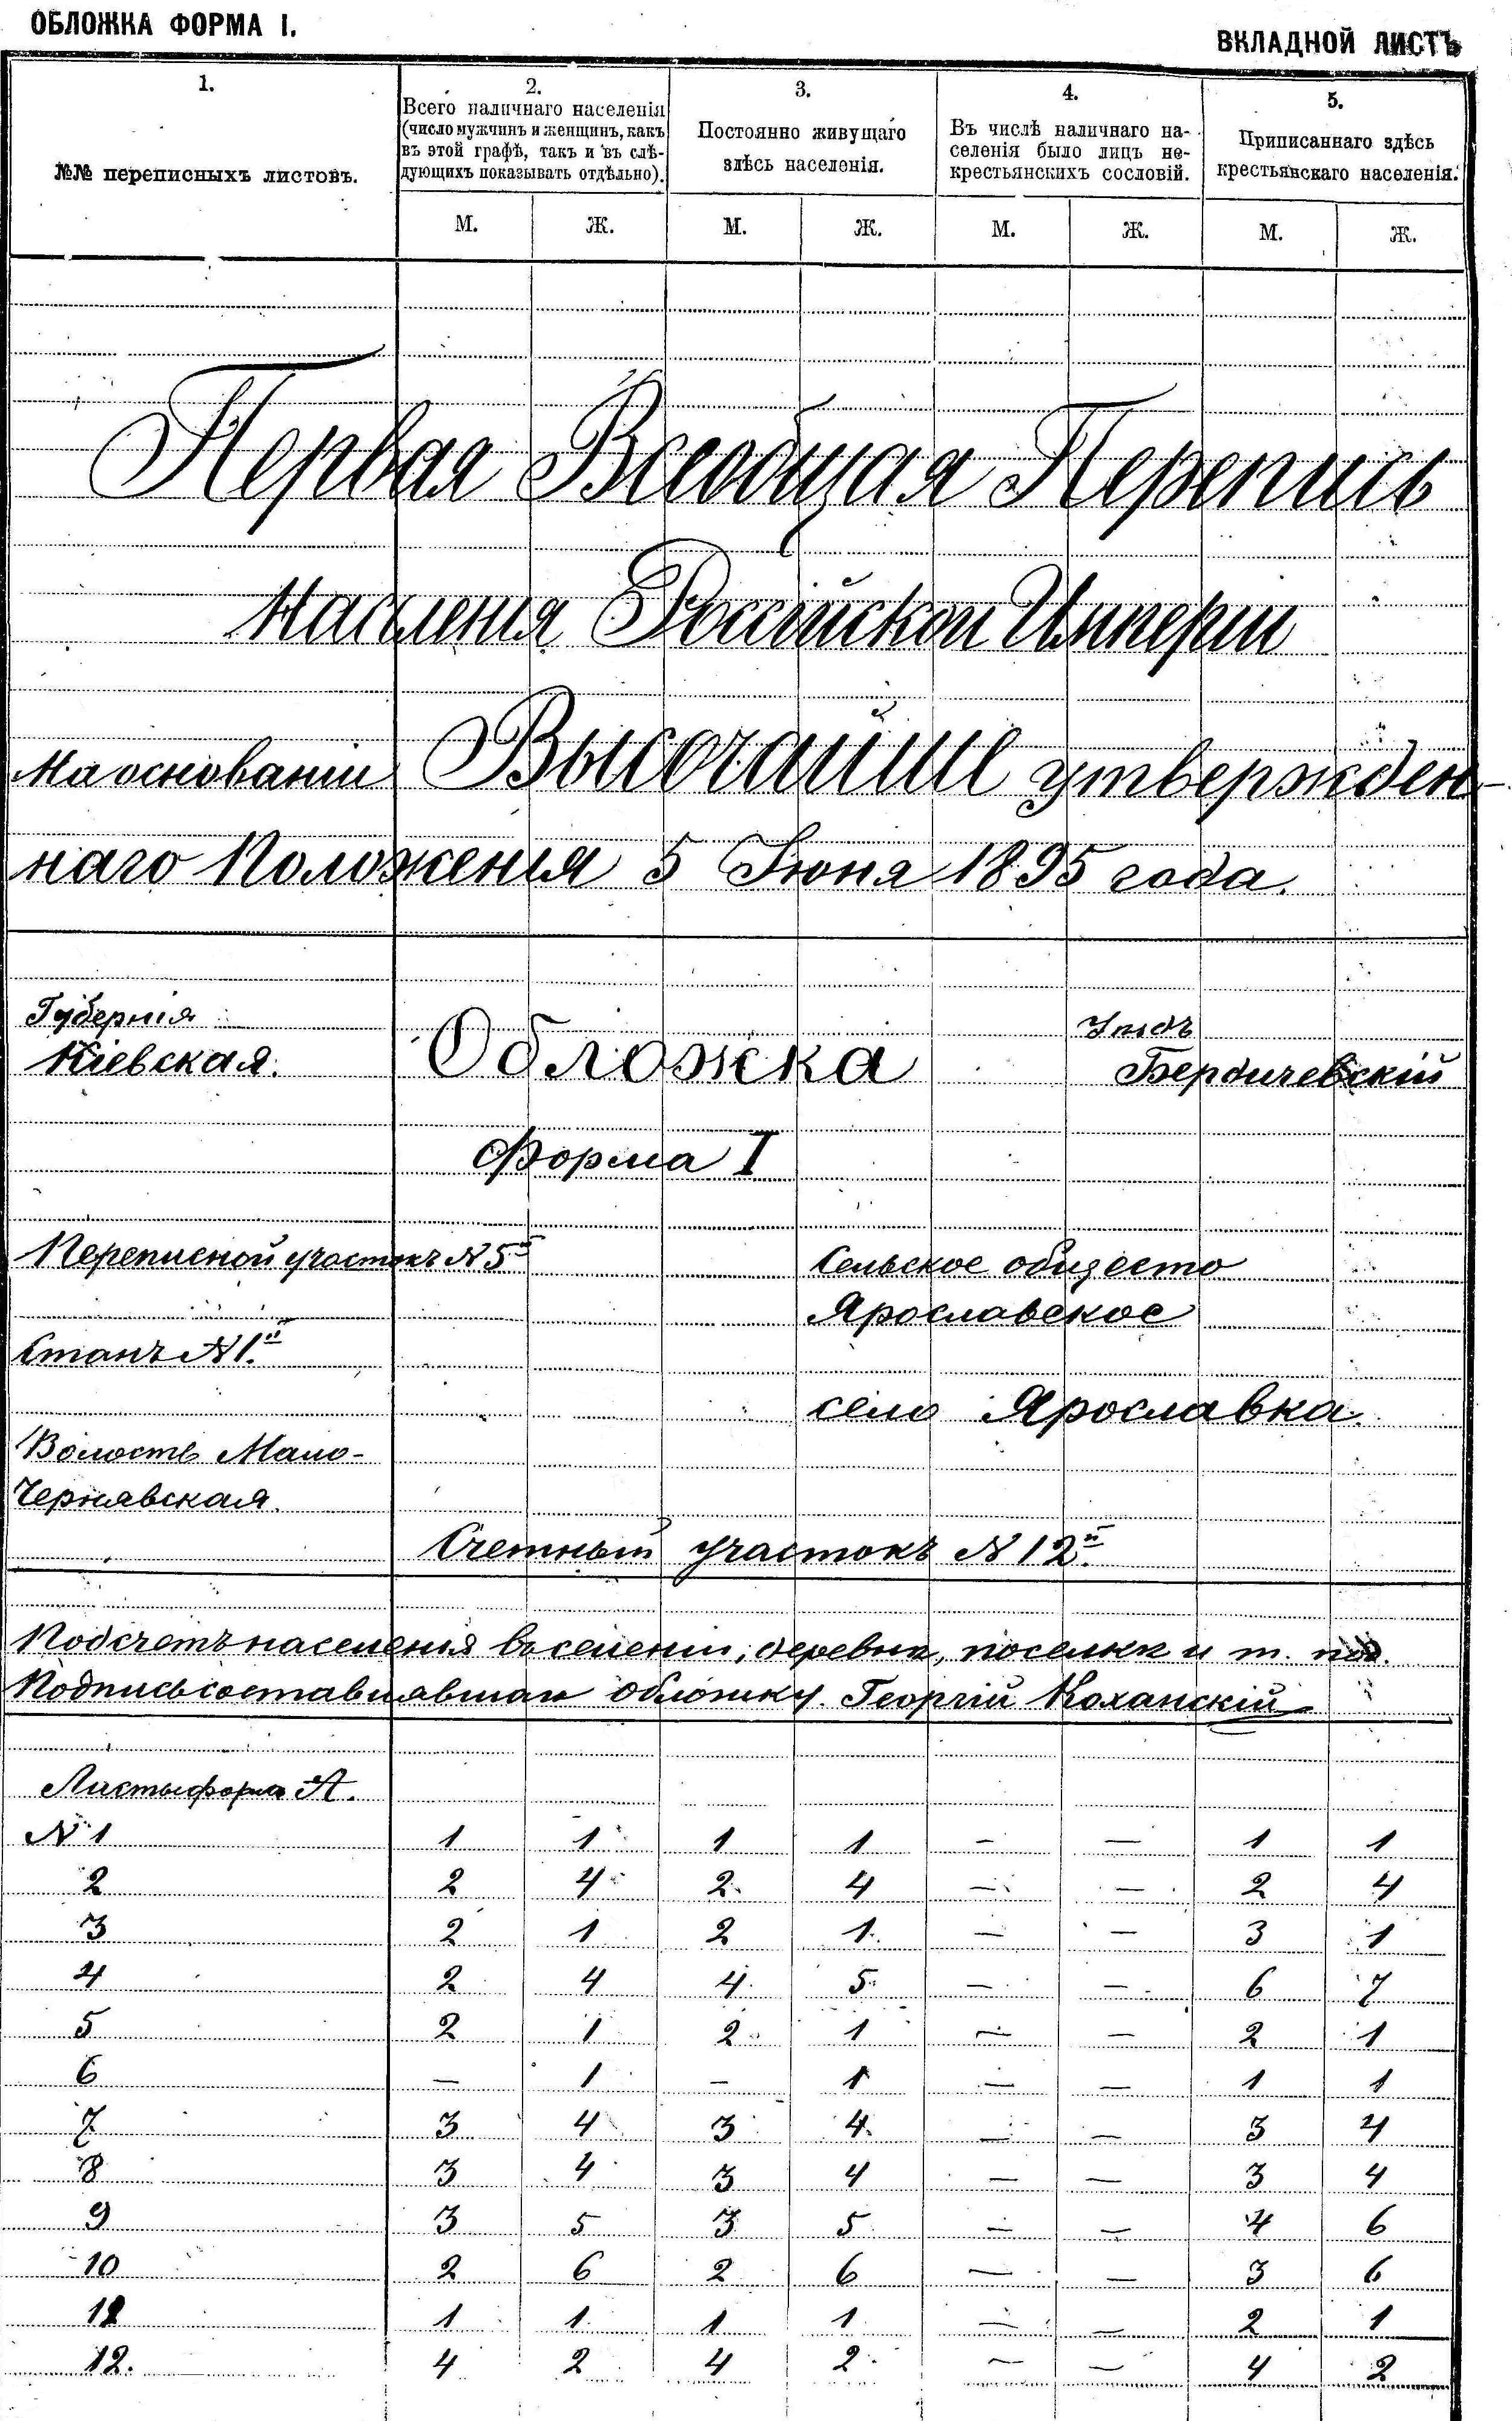 ОБЛОЖКА ФОРМА I.
ВКЛАДНОЙ ЛИСТЪ
1.
№№ переписныхъ листовъ.
2.
Всего наличнаго населенія
(число мужчинъ и женщинъ, какъ
въ этой графѣ, такъ и въ слѣ-
дующихъ показывать отдѣльно).
3.
Постоянно живущаго
здѣсь населенія.
4.
Въ числѣ наличнаго на-
селенія было лицъ не-
крестьянскихъ сословій.
5.
Приписаннаго здѣсь
крестьянскаго населенія.
М. Ж. М. Ж. М. Ж. М. Ж.
Первая Всеобщая Перепись
Населенія Россійской Имперіи
На основаніи Высочайше утвержден-
наго Положенія 5 Іюня 1895 года.
Губернія
Кіевская.
Обложка
Уѣздъ
Бердичевскій
Форма I
Переписной участокъ N 5й
Сельское общесто
Ярославское
Станъ N 1й
село Ярославка.
Волость Мало-
Чернявская.
Счетный участокъ N 12й
Подсчетъ населенія въ селеніи, деревнѣ, поселкѣ и т. под.
Подпись составлявшаго обложку. Георгій Коханскій
Листы форма А.
N 1 1 1 1 1 — — 1 1
2 2 4 2 4 — — 2 4
3 2 1 2 1 — — 3 1
4 2 4 4 5 — — 6 7
5 2 1 2 1 — — 2 1
6 — 1 — 1 — — 1 1
7 3 4 3 4 — — 3 4
8 3 4 3 4 — — 3 4
9 3 5 3 5 — — 4 6
10 2 6 2 6 — — 3 6
11 1 1 1 1 — — 2 1
12. 4 2 4 2 — — 4 2